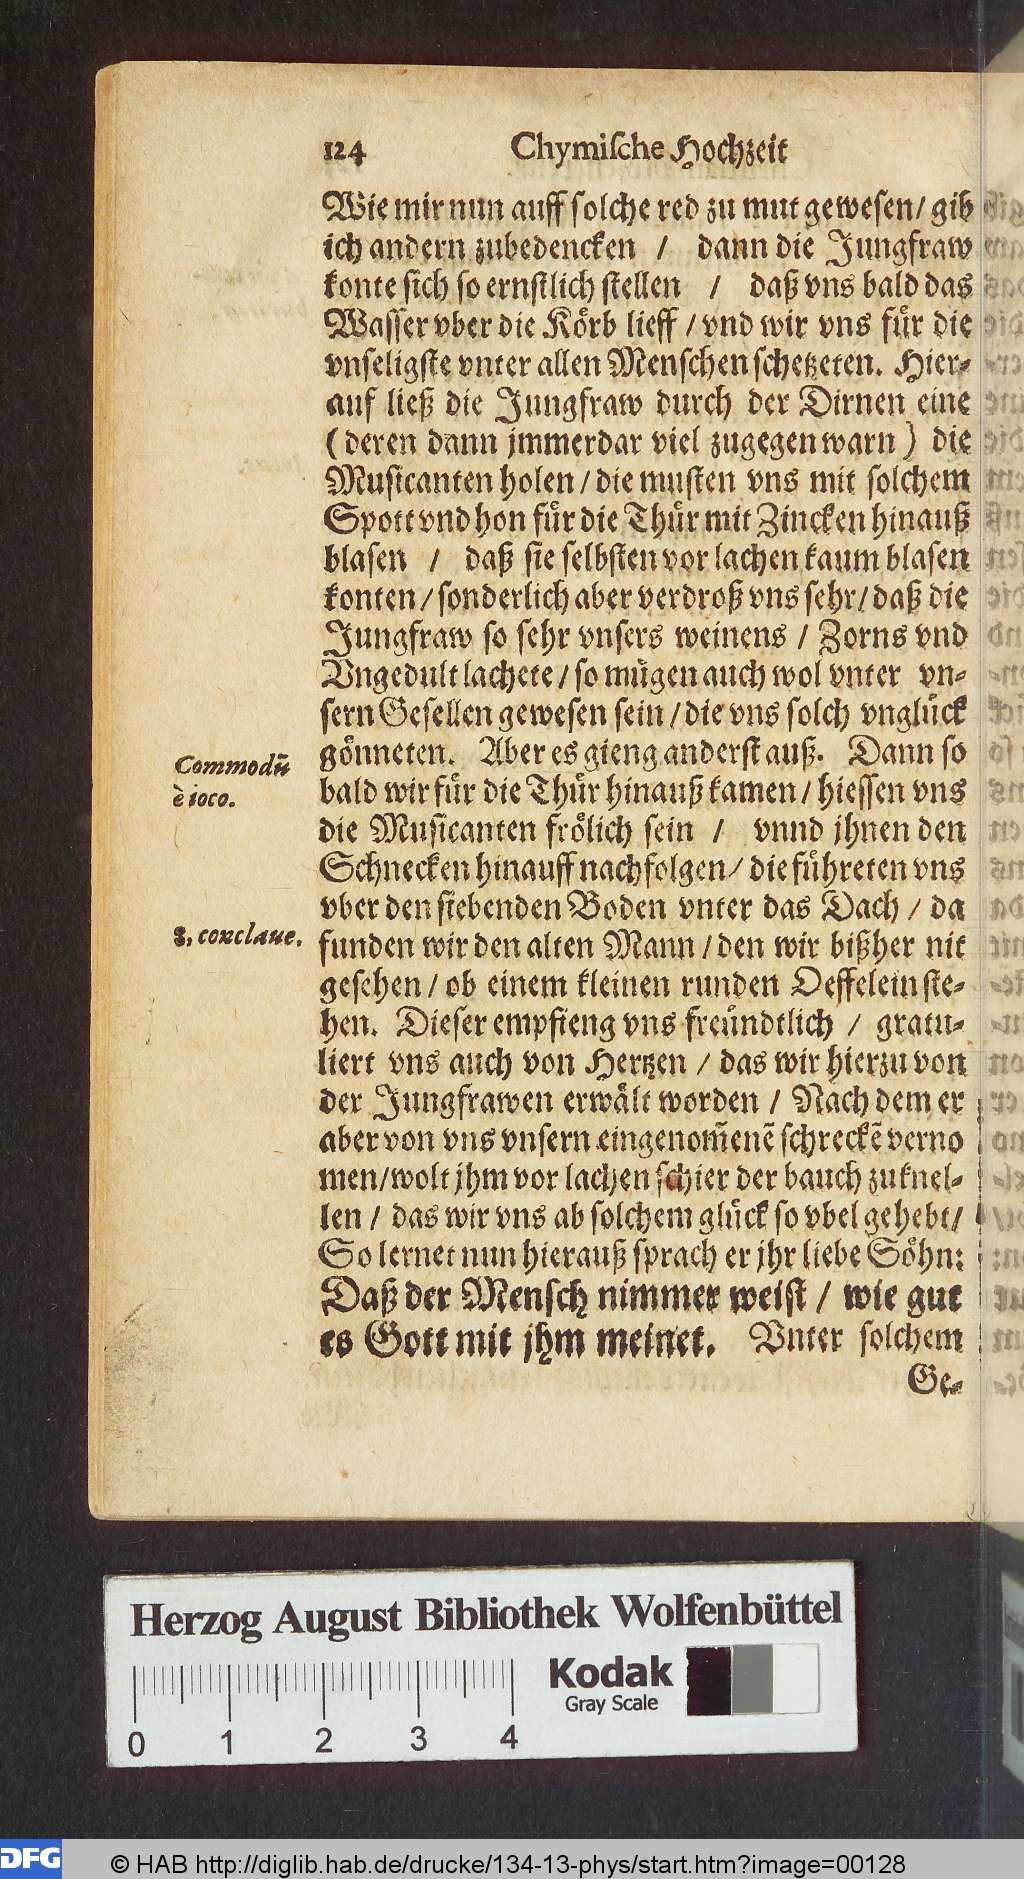 124 Chymische Hochzeit
Wie mir nun auff solche red zu mut gewesen/ gib
ich andern zubedencken / dann die Jungfraw
konte sich so ernstlich stellen / daß vns bald das
Wasser vber die Körb lieff / vnd wir vns für die
vnseligste vnter allen Menschen schetzeten. Hier-
auf ließ die Jungfraw durch der Dirnen eine
(deren dann jmmerdar viel zugegen warn) die
Musicanten holen / die musten vns mit solchem
Spott vnd hon für die Thür mit Zincken hinauß
blasen / daß sie selbsten vor lachen kaum blasen
konten / sonderlich aber verdroß vns sehr / daß die
Jungfraw so sehr vnsers weinens / Zorns vnd
Vngedult lachete / so mügen auch wol vnter vn-
sern Gesellen gewesen sein / die vns solch vnglück
gönneten. Aber es gieng anderst auß. Dann so
bald wir für die Thür hinauß kamen / hiessen vns
die Musicanten frölich sein / vnnd jhnen den
Schnecken hinauff nachfolgen / die führeten vns
vber den siebenden Boden vnter das Dach / da
funden wir den alten Mann / den wir bißher nit
gesehen / ob einem kleinen runden Oeffelein ste-
hen. Dieser empfieng vns freündtlich / gratu-
liert vns auch von Hertzen / das wir hierzu von
der Jungfrawen erwält worden / Nach dem er
aber von vns vnsern eingenom̃enẽ schreckẽ verno
men / wolt jhm vor lachen schier der bauch zuknel-
len / das wir vns ab solchem glück so vbel gehebt /
So lernet nun hierauß sprach er jhr liebe Söhn:
Daß der Mensch nimmer weist / wie gut
es Gott mit jhm meinet. Vnter solchem
Ge-
Commodũ
è ioco.
8. conclaue.
Herzog August Bibliothek Wolfenbüttel
Kodak
Gray Scale
0 1 2 3 4
DFG © HAB http://diglib.hab.de/drucke/134-13-phys/start.htm?image=00128